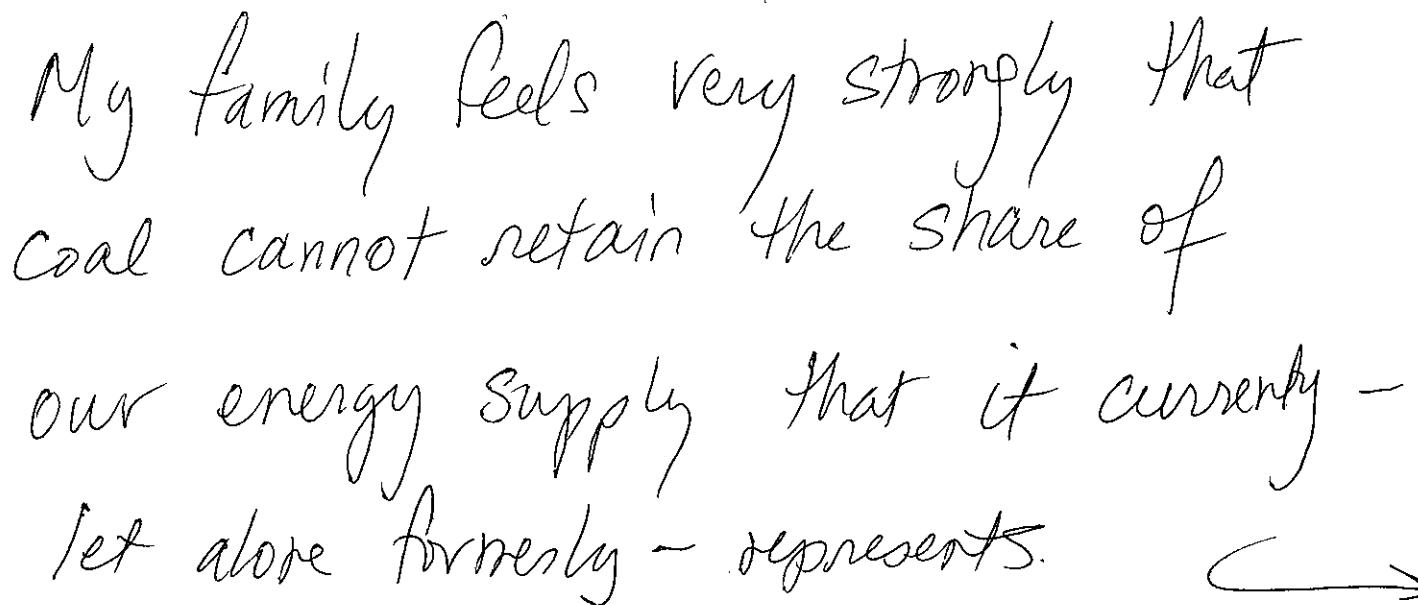 My family feels very strongly that
coal cannot retain the share of
our energy supply that it currently -
let alone formerly - represents.